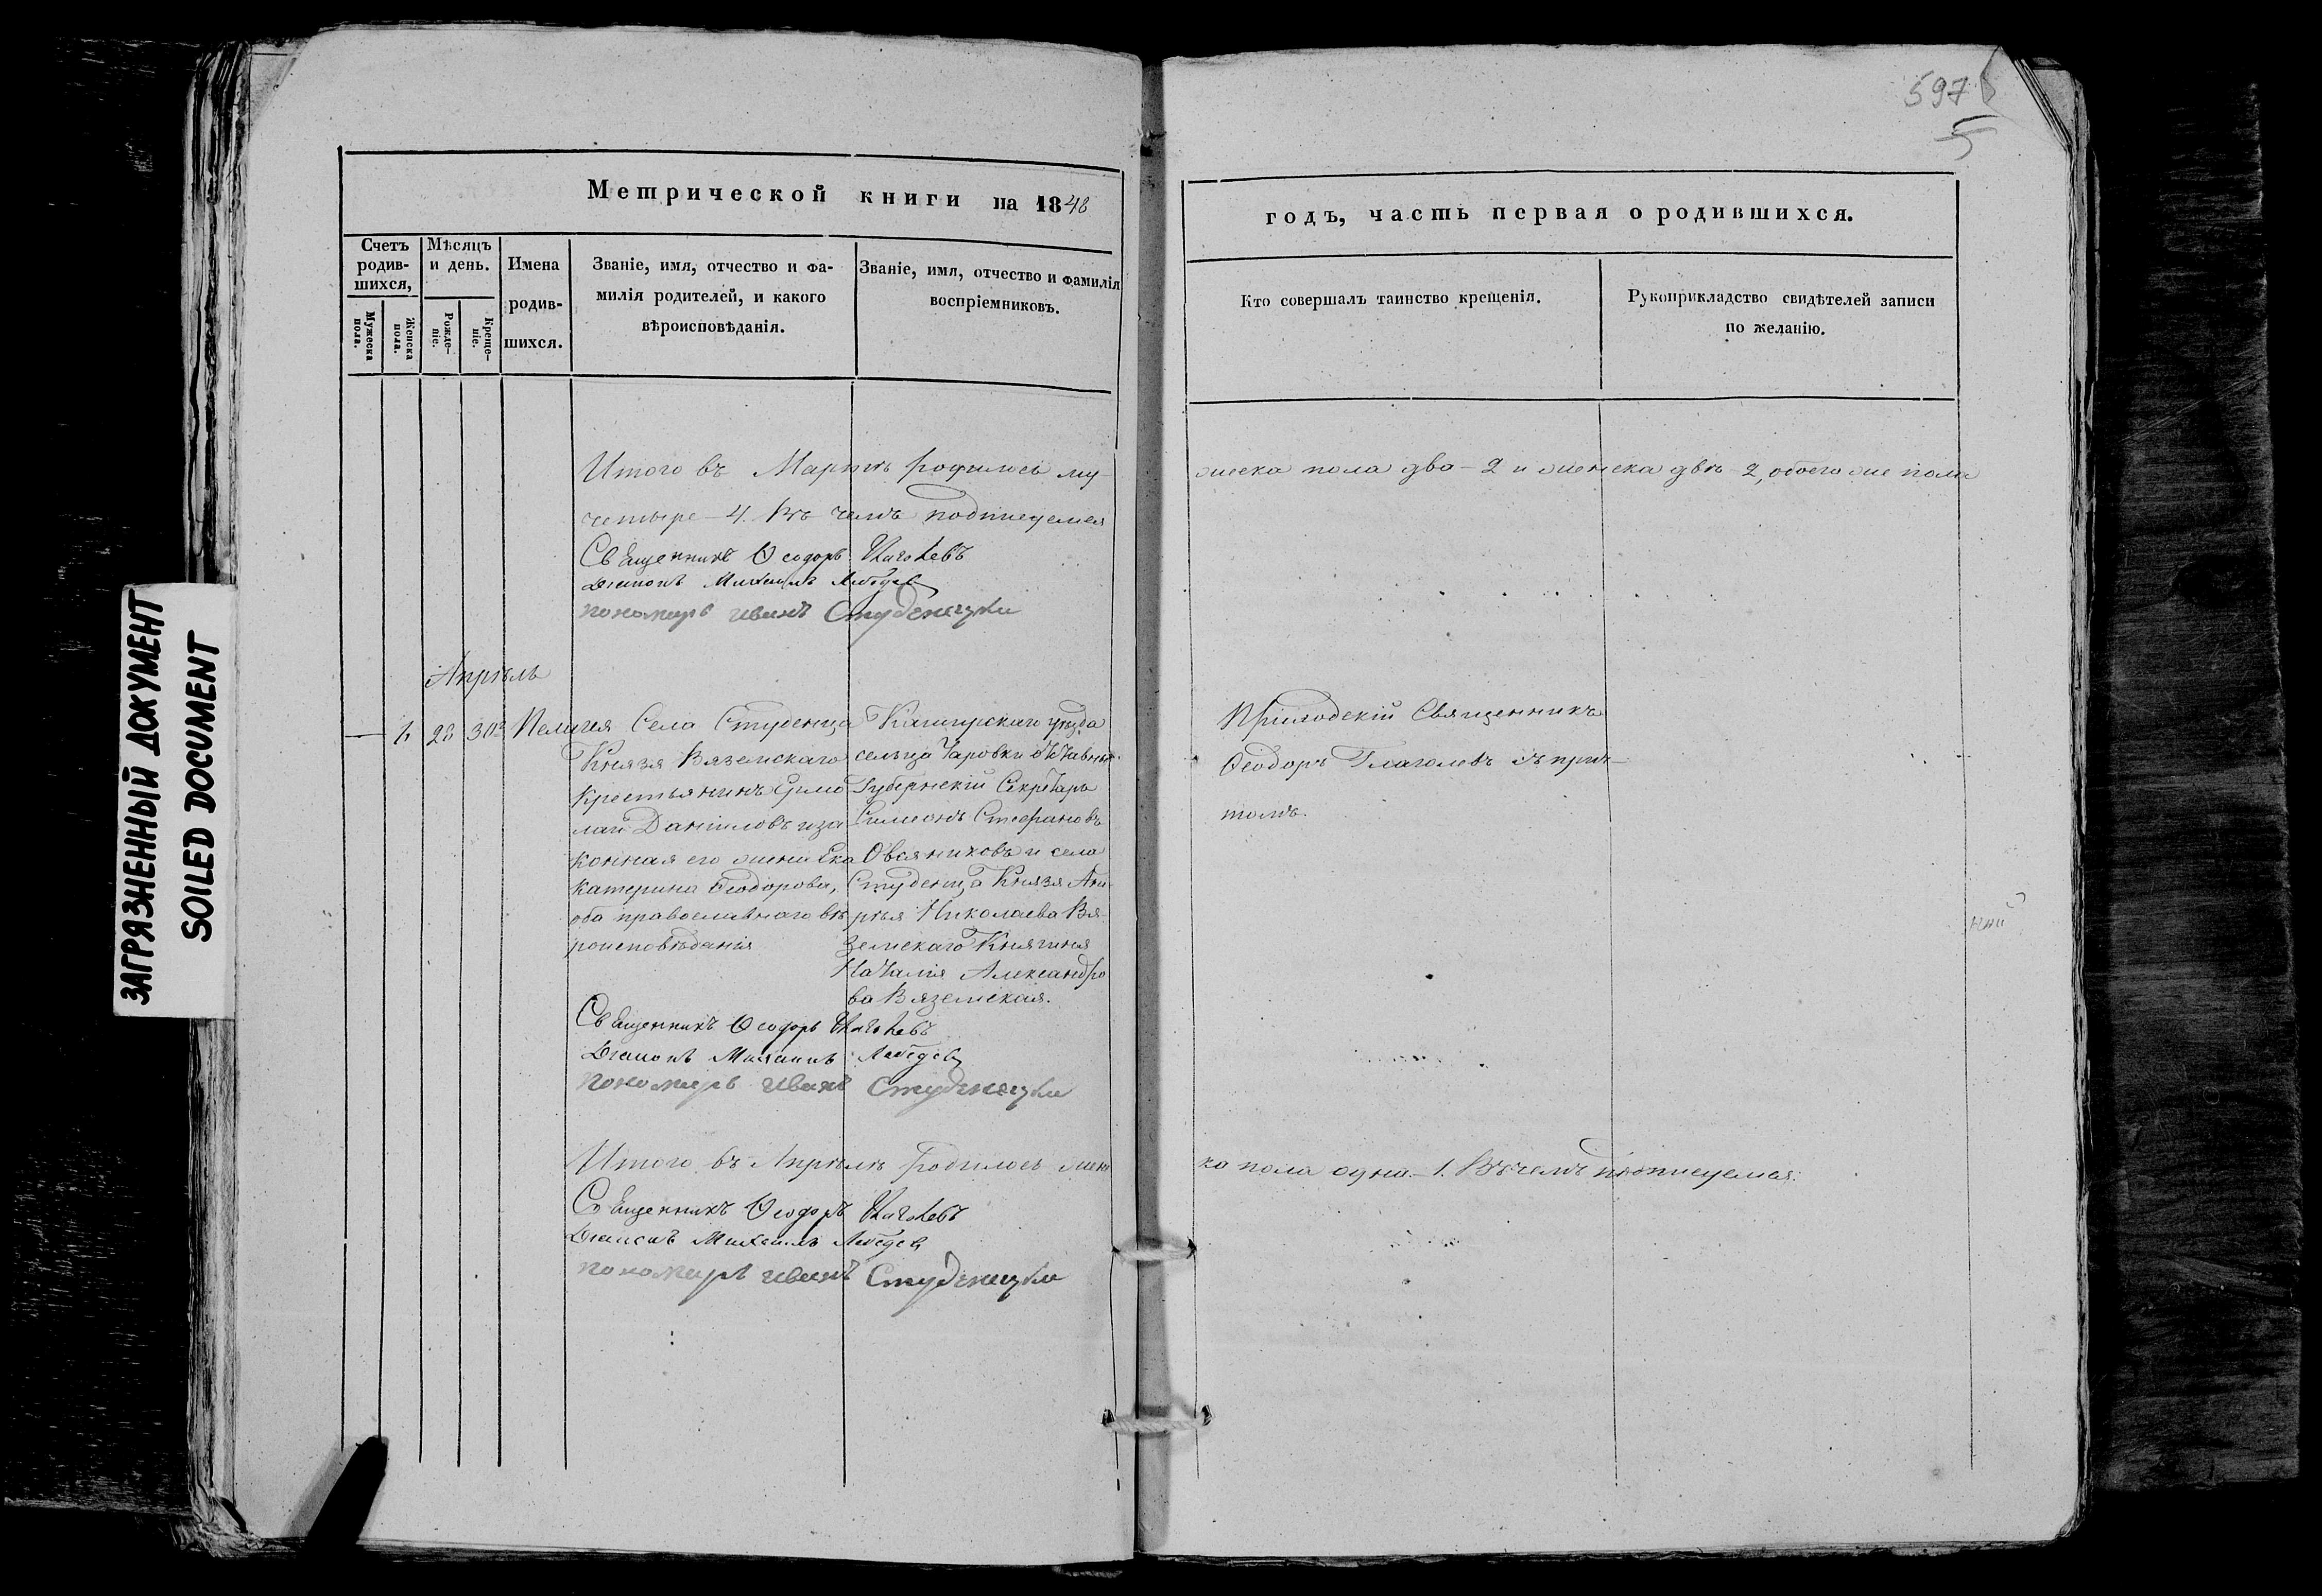 597
5
ЗАГРЯЗНЕННЫЙ ДОКУМЕНТ
SOILED DOCUMENT
Метрической книги на 1848
годъ, часть первая о родившихся.
Счетъ родив-шихся,
Мужеска пола.
Женска пола.
Мѣсяцъ и день.
Рожде-ніе.
Креще-ніе.
Имена
родив-
шихся.
Званіе, имя, отчество и фа-
милія родителей, и какого
вѣроисповѣданія.
Званіе, имя, отчество и фамилія
воспріемниковъ.
Кто совершалъ таинство крещенія.
Рукоприкладство свидѣтелей записи
по желанію.
Итого въ Мартѣ родилось му-
жеска пола два - 2 и женска двѣ - 2, обоего же пола
четыре - 4. Въ чемъ подписуемся
Священникъ Ѳеодоръ Глаголевъ
Діаконъ Михаилъ Лебедев
пономарь Иванъ Студенецкій
Апрѣль
28 30 Пелагія
Села Студенца
Князя Вяземскаго
Крестьянинъ Ермо
лай Даніиловъ и за
конная его жена Ека
катерина Ѳеодорова,
оба православнаго вѣ
роисповѣданія
Каширскаго уѣзда
сельца
Губернскій Секретарь
Симеонъ Стефановъ
Овсяниковъ и села
Студенца Князя Анд-
рея Николаева Вя-
земскаго Княгиня
Наталія Александро
ва Вяземская.
Приходскій Священникъ
Ѳеодоръ Глаголевъ съ прич-
томъ.
ний
Священникъ Ѳеодоръ Глаголевъ
Діаконъ Михаилъ Лебедев
пономарь Иванъ Студенецкій
Итого въ Апрѣлѣ родилось жен
ка пола одна - 1. Въ чемъ подписуемся:
Священникъ Ѳеодоръ Глаголевъ
Діаконъ Михаилъ Лебедев
пономарь Иванъ Студенецкій